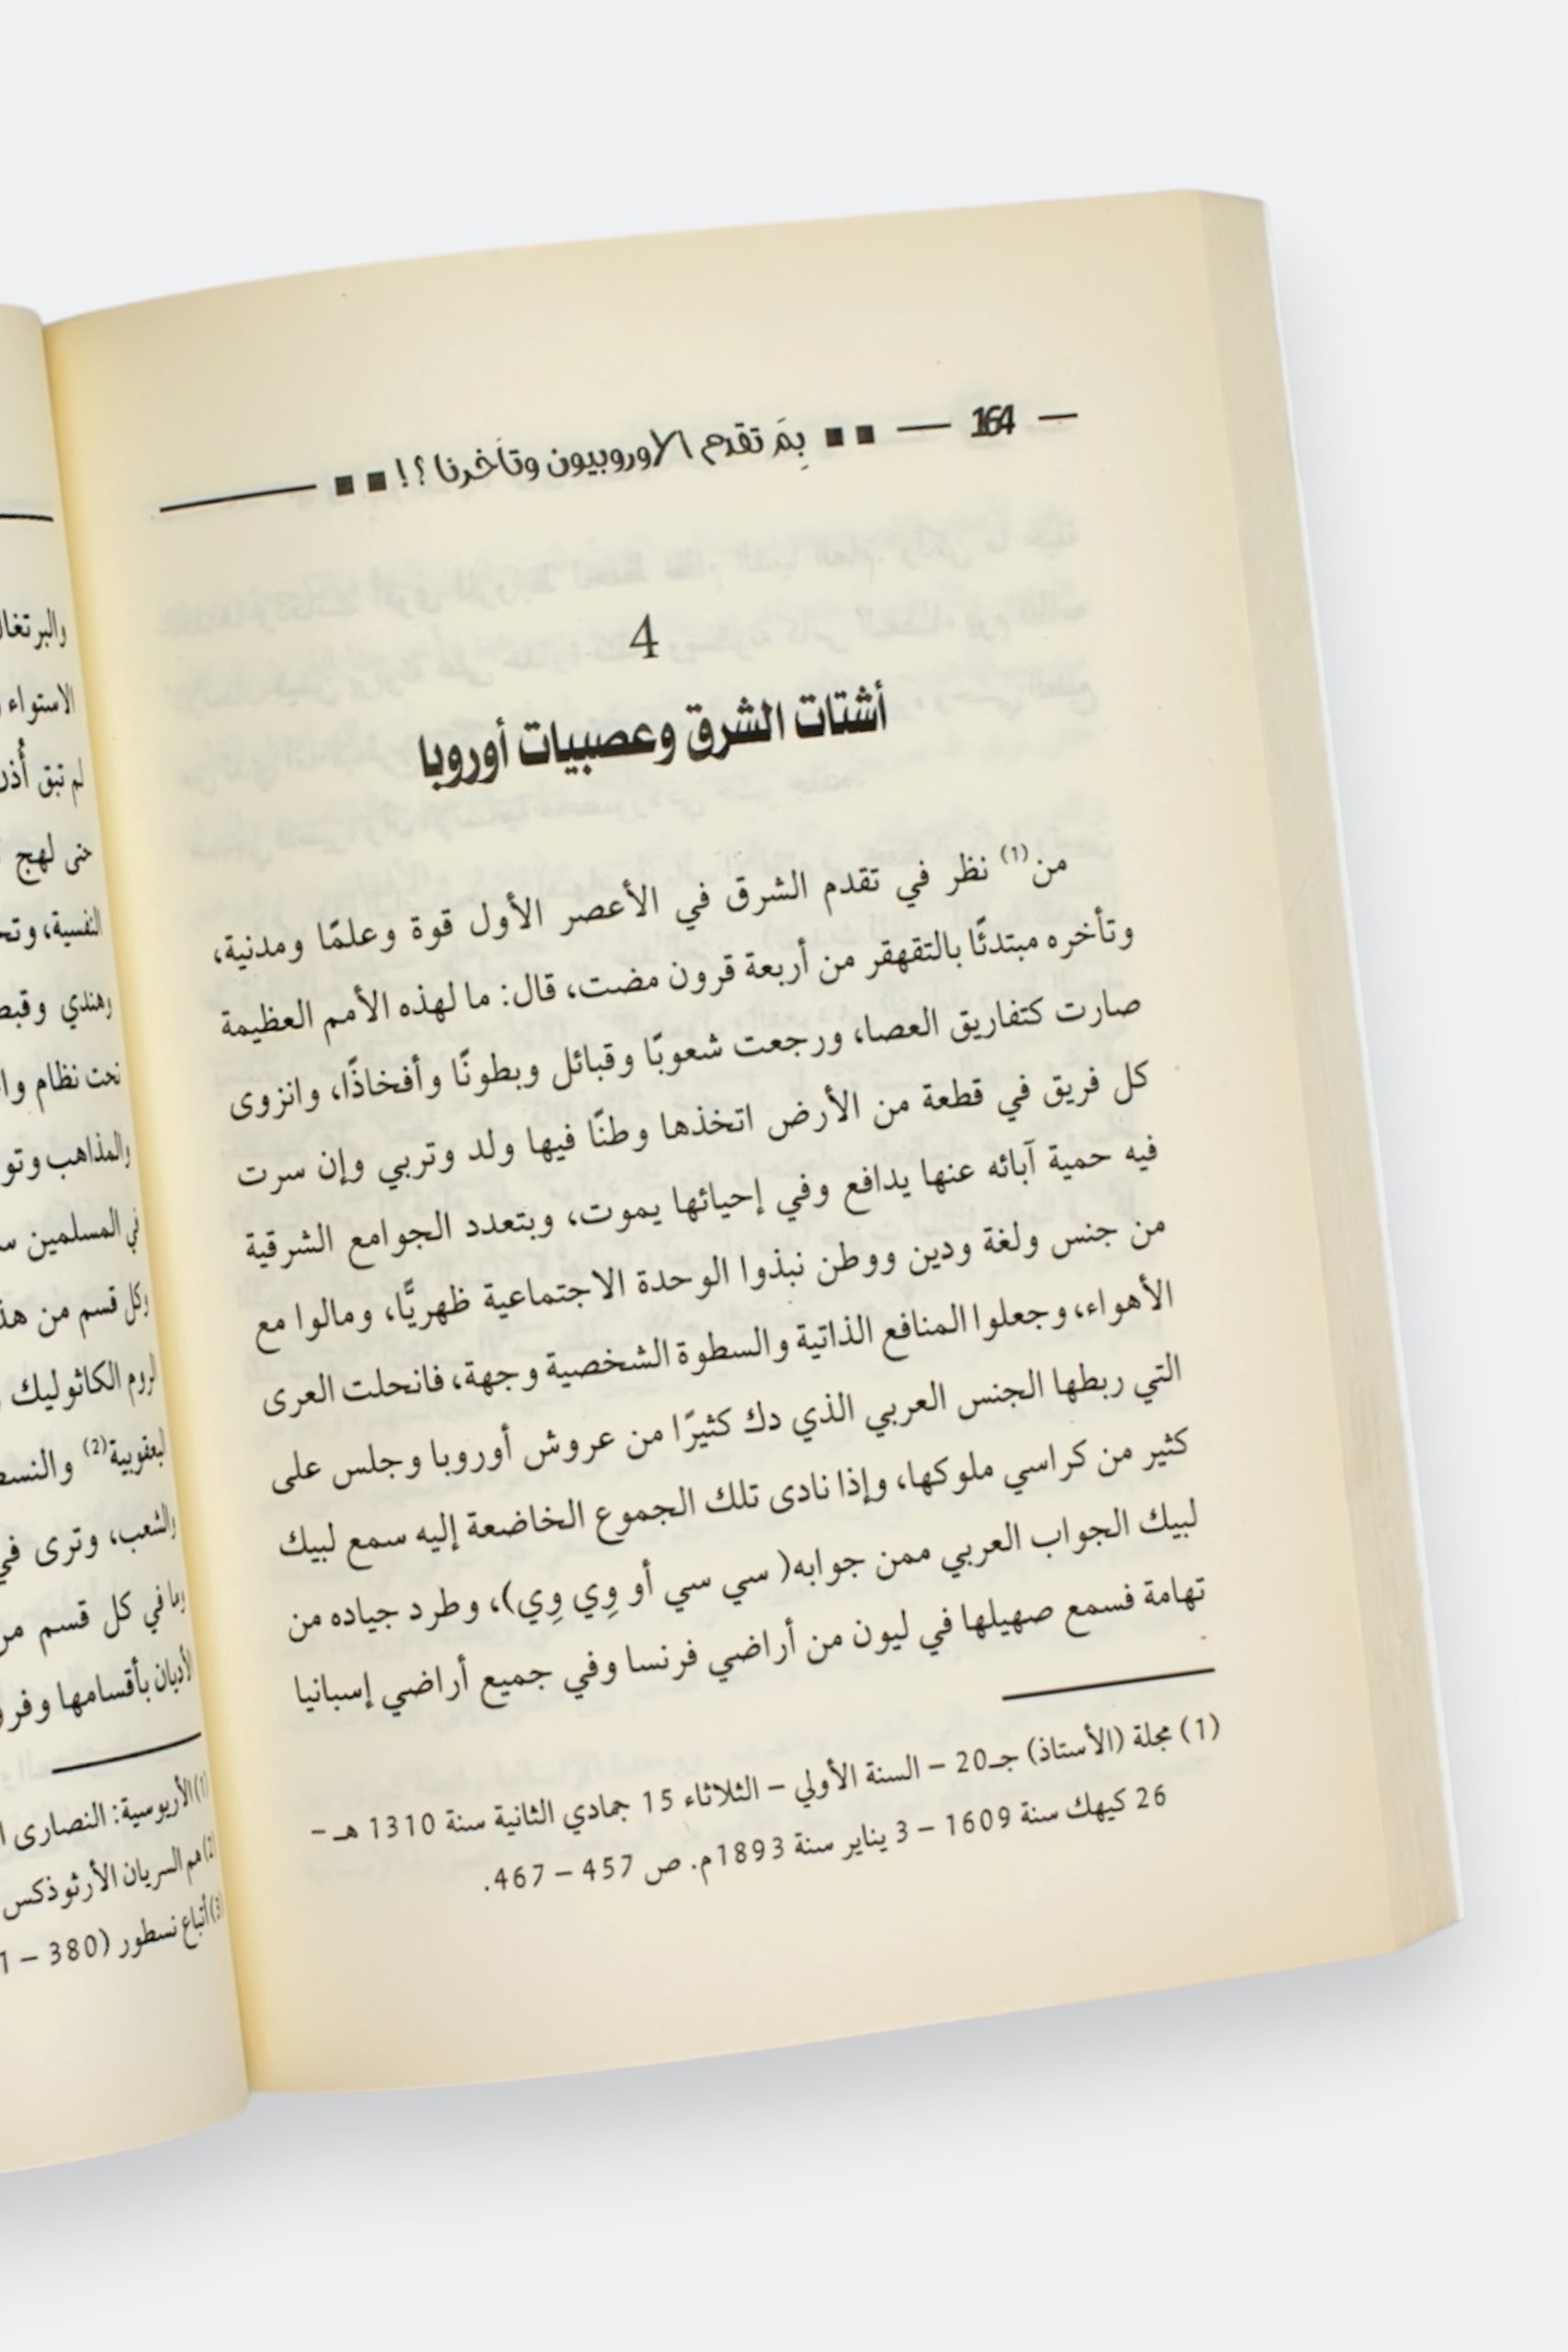 — 164 — ■ ■ بِمَ تقدم الاوروبيون وتأخرنا ؟ ! ■ ■ —
4
أشتات الشرق وعصبيات أوروبا
من(1) نظر في تقدم الشرق في الأعصر الأول قوة وعلمًا ومدنية،
وتأخره مبتدئًا بالتقهقر من أربعة قرون مضت، قال: ما لهذه الأمم العظيمة
صارت كتفاريق العصا، ورجعت شعوبًا وقبائل وبطونًا وأفخاذًا، وانزوى
كل فريق في قطعة من الأرض اتخذها وطنًا فيها ولد وتربي وإن سرت
فيه حمية آبائه عنها يدافع وفي إحيائها يموت، وبتعدد الجوامع الشرقية
من جنس ولغة ودين ووطن نبذوا الوحدة الاجتماعية ظهريًّا، ومالوا مع
الأهواء، وجعلوا المنافع الذاتية والسطوة الشخصية وجهة، فانحلت العرى
التي ربطها الجنس العربي الذي دك كثيرًا من عروش أوروبا وجلس على
كثير من كراسي ملوكها، وإذا نادى تلك الجموع الخاضعة إليه سمع لبيك
لبيك الجواب العربي ممن جوابه( سي سي أو وِي وِي)، وطرد جياده من
تهامة فسمع صهيلها في ليون من أراضي فرنسا وفي جميع أراضي إسبانيا
(1) مجلة (الأستاذ) جـ20 – السنة الأولي – الثلاثاء 15 جمادي الثانية سنة 1310 هـ –
26 كيهك سنة 1609 – 3 يناير سنة 1893م. ص 457 – 467.
الاستواء
لم تبق أُذن
لهج
النفسية،
وهندي
تحت نظام
والمذاهب
في المسلمين
وكل قسم من
الروم الكاثوليك
اليعقوبية(2)
والشعب، وترى في
وما في كل قسم من
الأديان بأقسامها
(1) الأريوسية: النصارى
(2) هم السريان الأرثوذكس
(3) أتباع نسطور (380 –